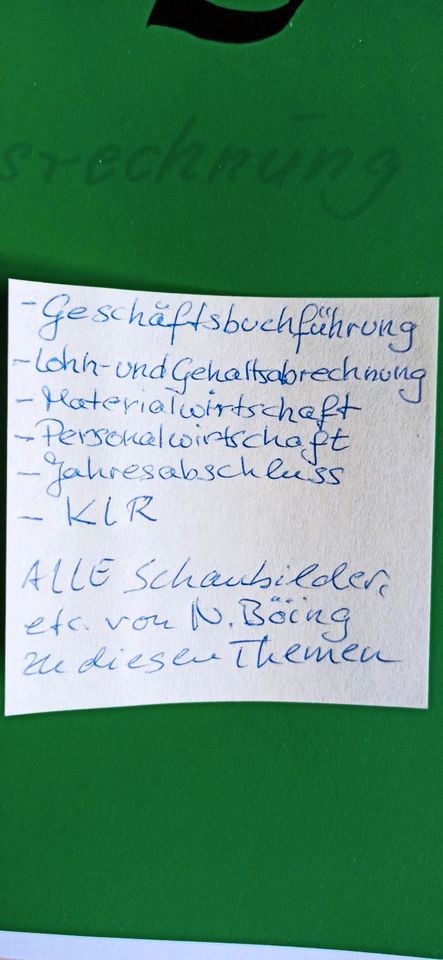 srechnung
- Geschäftsbuchführung
- Lohn- und Gehaltsabrechnung
- Materialwirtschaft
- Personalwirtschaft
- Jahresabschluss
- KLR
ALLE Schaubilder,
etc. von N. Böing
zu diesen Themen